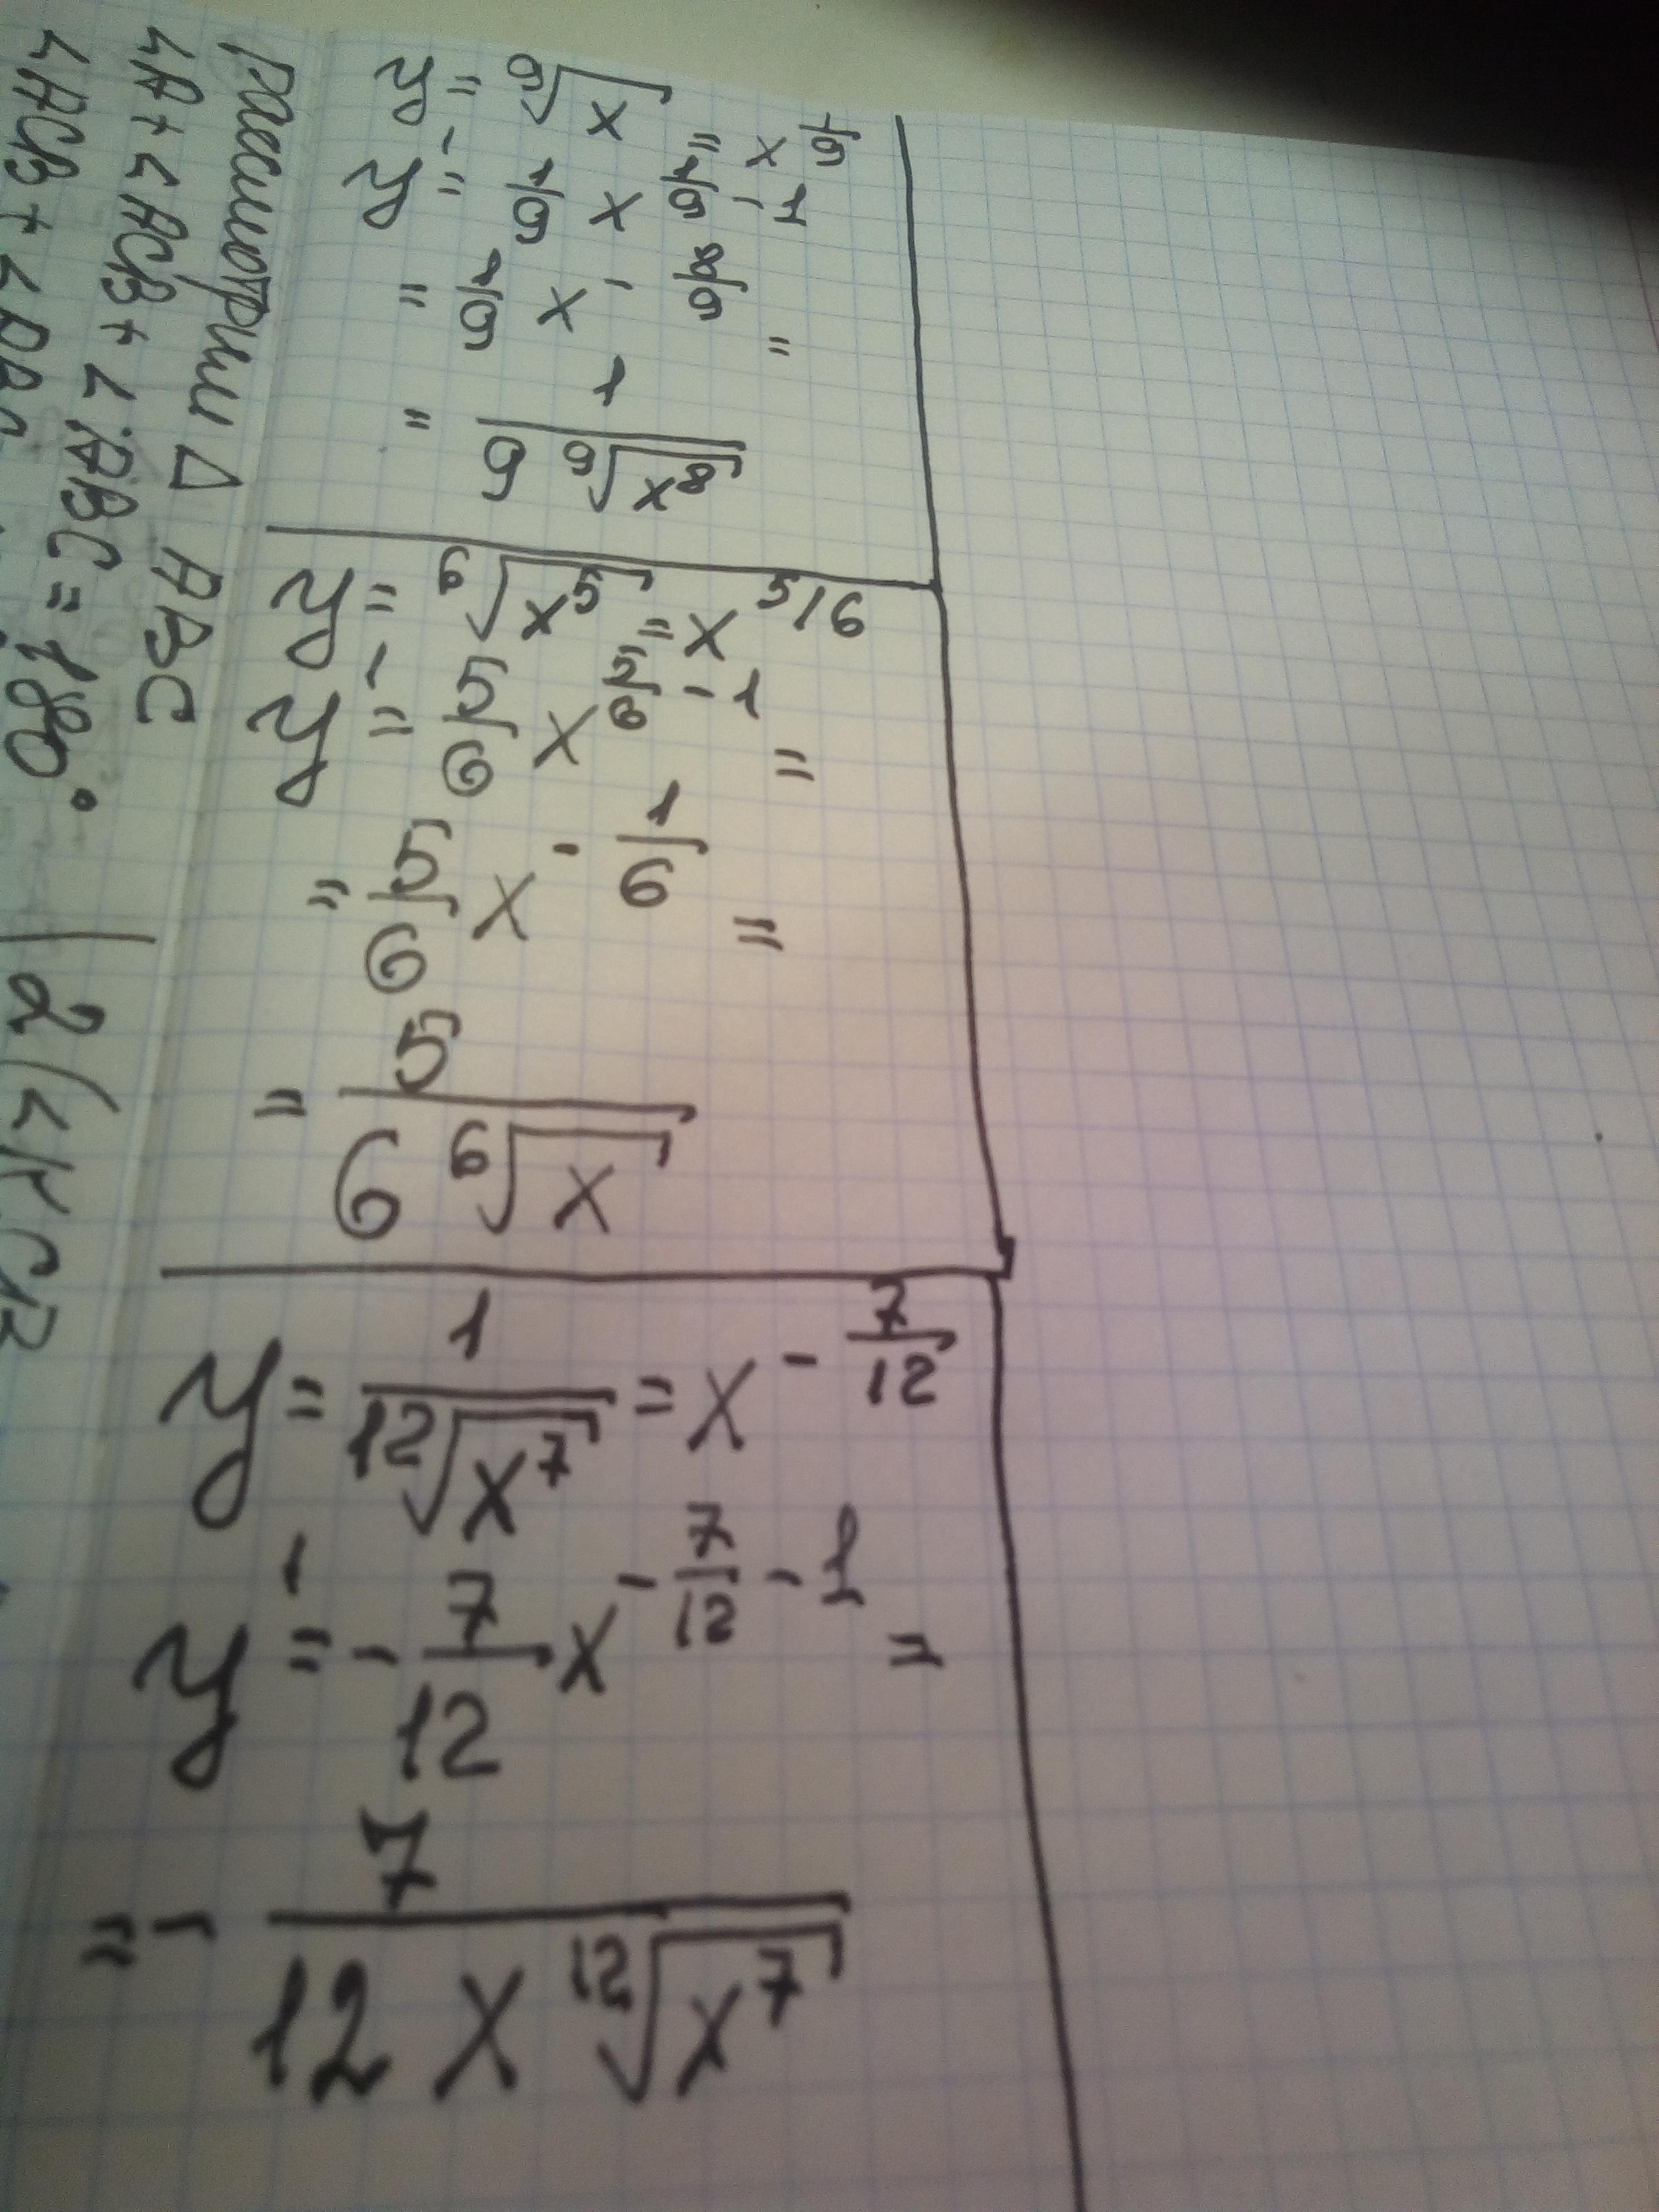 y = ⁹√x = x^(1/9)
y' = 1/9 x^(1/9 - 1) =
= 1/9 x^(-8/9) =
= 1/(9 ⁹√(x⁸))
y = ⁶√(x⁵) = x^(5/6)
y' = 5/6 x^(5/6 - 1) =
= 5/6 x^(-1/6) =
= 5/(6 ⁶√x)
y = 1/(¹²√(x⁷)) = x^(-7/12)
y' = -7/12 x^(-7/12 - 1) =
= -7/(12 x ¹²√(x⁷))
Рассмотрим △ ABC
<A + <ACB + <ABC = 180°
<ACB + <
2(<